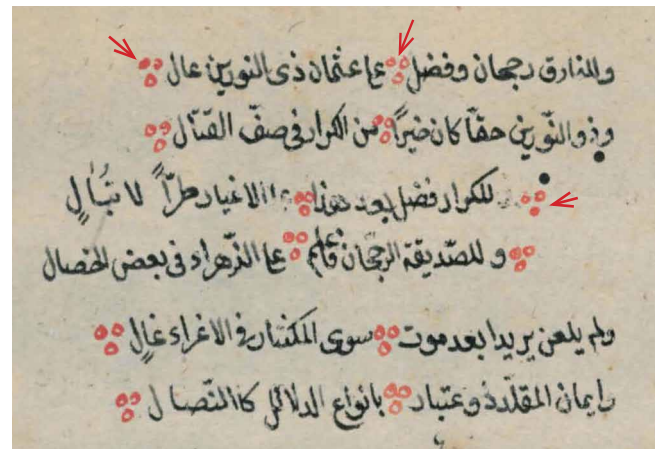 وللفاروق رجحان وفضل على عثمان ذى النورين عال
وذو النّورين حقّا كان خيرًا من الكرار فى صفّ القتال
للكرار فضل بعد هذا على الاغيار طرّاً لا تبال
وللصّديقة الرجحان فاعلم على الزّهراء فى بعض الخصال
ولم يلعن يزيدا بعد موت سوى المكثار فى الاغراء غال
وايمان المقلّد ذو عتبار بانواع الدلائل كالنّصال